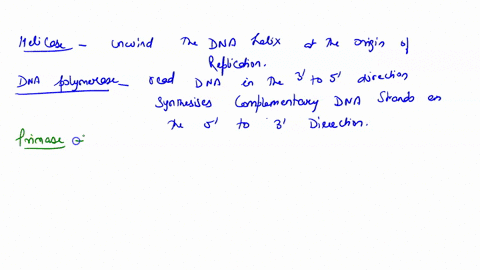 Helicase - unwind the DNA helix at the origin of
Replication.
DNA polymerase - read DNA in the 3' to 5' direction
Synthesises Complementary DNA Strands on
the 5' to 3' Direction.
Primase